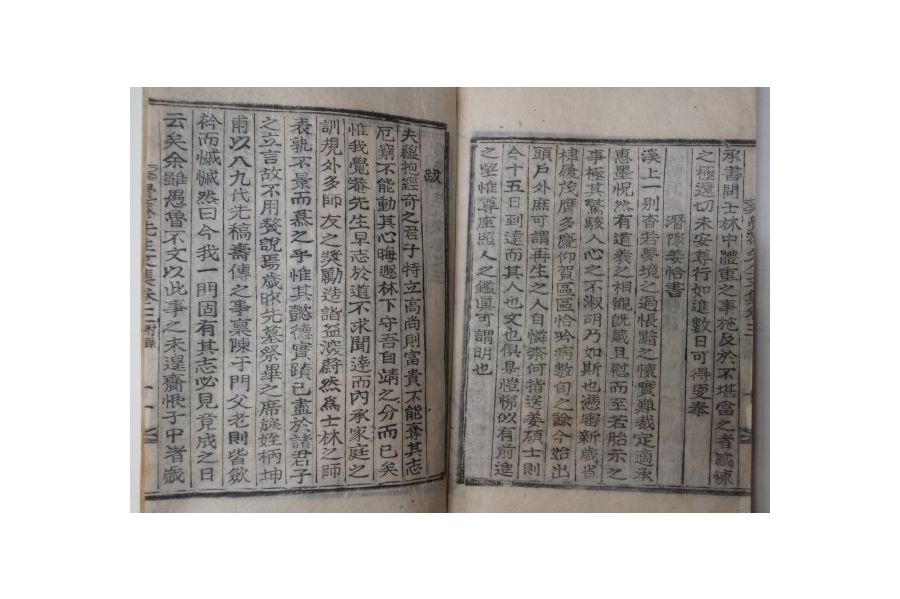 承書閈士林中體重之事施及於不堪當之者感悚
之極還切未安尊行如進數日可得更奉
潛隱姜恰書
溪上一別杳若夢境之過悵黯之懷實難裁定適承
惠墨怳然有道義之相觀旣感且慰而至若胎示之
事極其驚駭人心之不淑胡乃如斯也憑審新歲省
棣履茂膺多慶仰賀區區恰吟病數旬之諭今始出
頭戶外庶可謂再生之人自憐柰何指送姜碩士則
今十五日到達而其人也文也俱是愷悌似有前進
之望惟尊座照人之鑑眞可謂明也
跋
夫蘊抱經奇之君子特立高尚則富貴不能奪其志
厄窮不能動其心晦遯林下守吾自靖之分而已矣
惟我覺菴先生早志於道不求聞達而內承家庭之
訓規外多師友之奬勵造詣益邃蔚然為士林之師
表孰不景而慕之乎惟其懿德實蹟已盡於諸君子
之立言故不用贅說焉歲暎先墓祭畢之席族姪柄坤
甫以八九代先稿壽傳之事稟陳於門父老則皆斂
衿而慽慽然曰今我一門固有其志必見竟成之日
云矣余雖愚魯不文以此事之未遑齎恨于中者歲
覺菴先生文集卷二 附錄